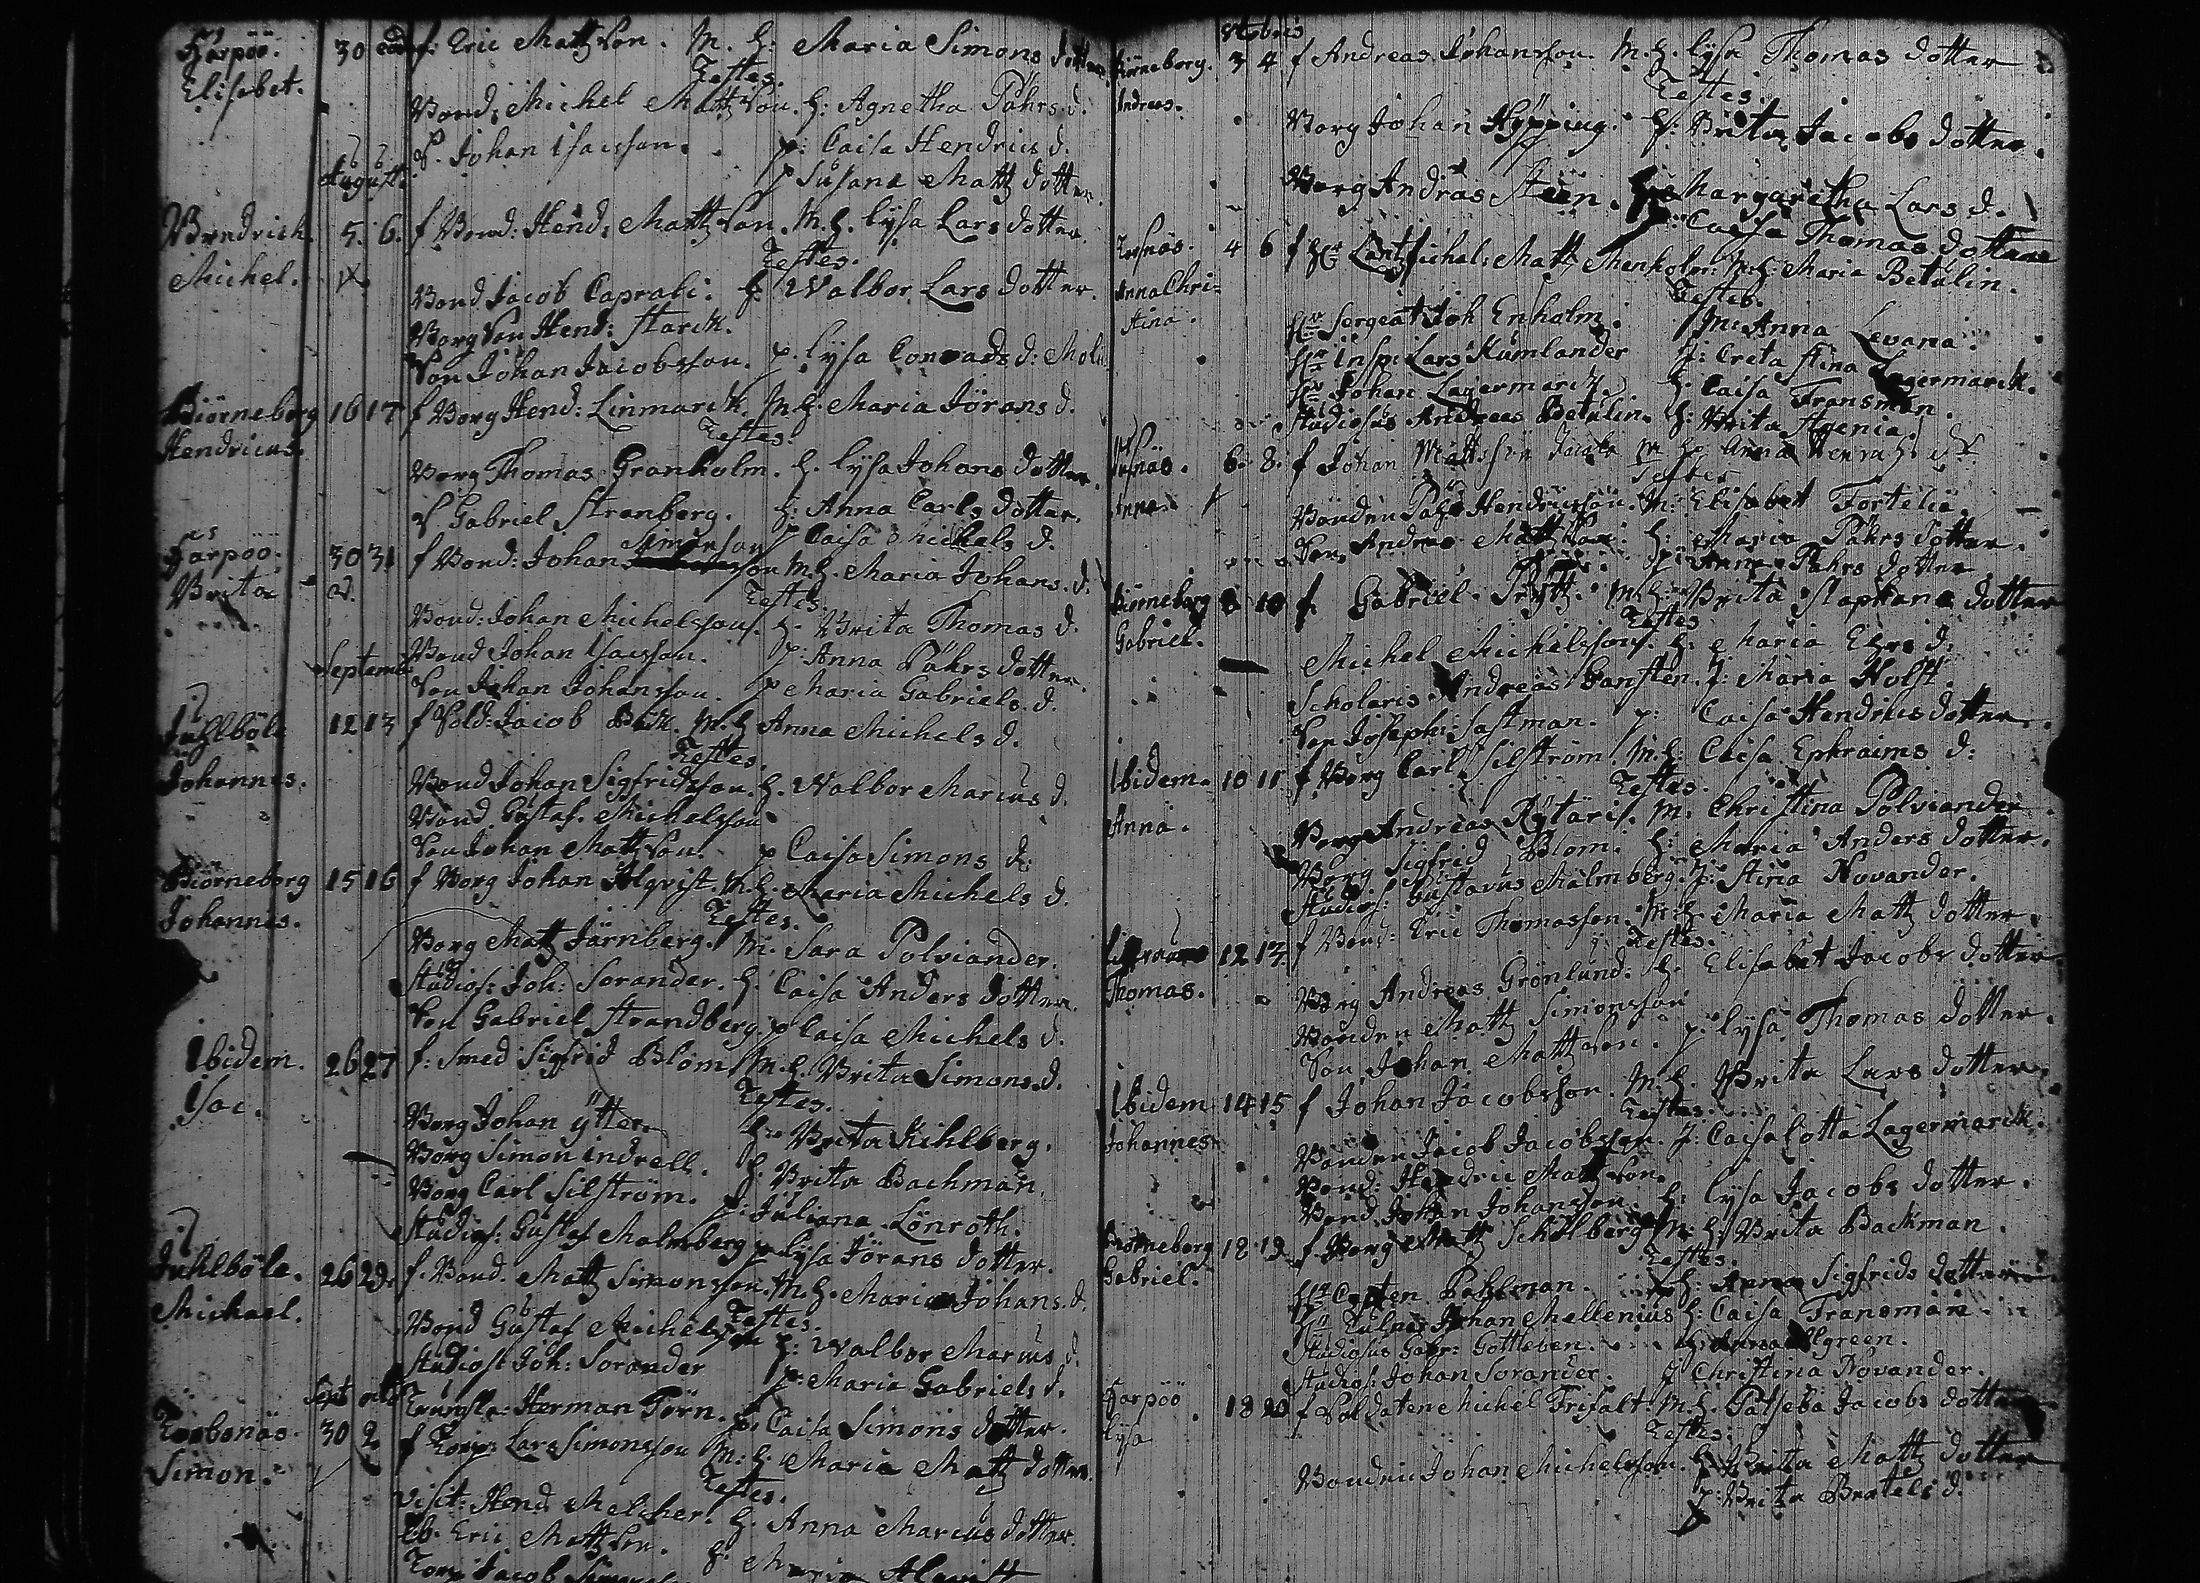 Harpöö. 30 eod. f: Eric Mattsson. M. h: Maria Simons dotter
Elisabet. Testes.
Bond: Michel Mattsson. h: Agnetha Påhrs d.
S. Johan Isacsson. p: Caisa Hendrics d.
August: p Susana Matts dotter.
5. 6. f Bond: Hend: Mattsson. M. h. Lysa Lars dotter.
Michel. Testes.
Bond Jacob Caprali. h: Walbor Lars dotter.
Borg Son Hend: Starck.
Son Johan Jacobsson. p. Lysa Conrads d:
Biörneborg 16 17 f Borg Hend: Linmarck. M h. Maria Jörans d.
Hendricus. Testes.
Borg Thomas Granholm. h. Lysa Johans dotter.
S Gabriel Stranberg. h: Anna Carls dotter.
p Caisa Michels d.
Harpöö. 30 31 f Bond: Johan Simonsson M. h. Maria Johans. d.
Brita Testes.
Bond: Johan Michelsson. h. Brita Thomas d.
Bond Johan Isacsson. p: Anna Påhrs dotter.
Septemb
Son Johan Johansson. p Maria Gabriels. d.
Inhlböle 12 13 f Sold: Jacob Bock. M. h Anna Michels d.
Johannes. Testes.
Bond Johan Sigfridsson. h. Walbor Marcus d.
Bond Gustaf. Michelsson
Son Johan Mattsson. p Caisa Simons d:
Biörneborg 15 16 f Borg Johan Holqvist. M. h. Maria Michels d.
Johannes. Testes.
Borg Matts Järnberg. M. Sara Polviander.
Studios: Joh: Sorander. h. Caisa Anders dotter.
Son Gabriel Strandberg. p Caisa Michels d.
Ibidem. 26 27 f: Smed Sigfrid Blom M. h. Brita Simons. d.
Isac. Testes.
Borg Johan Ytter. h: Brita Kihlberg.
Borg Simon Indrell. h: Brita Bachman.
Borg Carl Silström. p: Juliana Lönroth.
Studios: Gustaf Malmberg p Lysa Jörans dotter.
Inhlböle. 26 29 f. Bond. Matts Simonsson. M. h. Maria Johans. d.
Michael. Testes.
Bond Gustaf Michelsson h: Walbor Marcus d.
Studios: Joh: Sorander p: Maria Gabriels d.
Sept octob
Herman Törn. p. Caisa Simons dotter.
Torbonäs. 30 2 f Torp: Lars Simonsson M. h. Maria Matts dotter.
Simon. Testes.
Visit: Hend Melcher. h. Anna Marcus dotter.
Eric Mattsson. h: Maria
Torp: Jacob
8tobris
Biörneborg. 3 4 f Andreas Johansson. M. h. Lysa Thomas dotter
Andreas. Testes.
Borg Johan Hypping. h: Brita Jacobs dotter.
Borg Andras Steen. h: Margaretha Lars d.
p: Caisa Thomas dotter
Torsnäs. 4 6 f Hr Matts Menholm: M. h. Maria Betulin.
Anna Chri- Testes.
stina.
Hr Sergeat Joh Enholm. M: Anna Levana.
Hr Insp: Lars Kumlander J: Creta Stina Lagermarck.
Hr Johan Lagermarck h. Caisa Fransman.
Studiosus Andreas Betulin. h: Brita Stenia.
6. 8. f Johan Mattsson M h: Anna
Anna Testes
Bonden Påhl Hendricsson. M: Elisabet Fortelia.
Son Andreas Mattsson h: Maria Påhrs dotter.
p: Anna Påhrs dotter
Biörneborg 8 10 f. Gabriel Prytz. M h: Brita Staphans dotter
Gabriel. Testes
Michel Michelsson. h. Maria Ehrs d.
Scholaris Andreas Gansten. J: Maria Holst.
Son Joseph Sastman. p: Caisa Hendrics dotter.
Ibidem. 10 11 f. Borg Carl Silström. M. h: Caisa Ephraims d:
Anna. Testes.
Borg Andreas Rytäri. M. Christina Polviander
Borg Sigfrid Blom. h: Maria Anders dotter.
Studios: Gustavus Malmberg. J: Stina Novander.
12 13. f Bond: Eric Thomasson. M. h. Maria Matts dotter.
Thomas. Testes.
Borg Andreas Grönlund. h. Elisabet Jacobs dotter
Bonden Matts Simonsson
Son Johan Mattsson. p. Lysa Thomas dotter.
Ibidem 14 15 f Johan Jacobsson. M. h. Brita Lars dotter
Johannes Testes.
Bonden Jacob Jacobsson. J: Caisa Lotta Lagermarck.
Bond: Hendric Mattsson.
Bond. Johan Johansson. h: Lysa Jacobs dotter.
Biörneborg 18 19 f Borg Matts Schölberg M: h: Brita Backman.
Gabriel. Testes.
Hr Capten Pahlman. h: Anna Sigfrids dotter
Hr Johan Mellenius h: Caisa Fransman.
Studiosus Gabr: Gottleben. h: Anna Algreen.
Studios: Johan Sorander. J Christina Novander.
Harpöö 18 20 f Soldaten Michel Trifalt. M. h. Patseba Jacobs dotter
Lysa Testes:
Bonden Johan Michelsson. h: Brita Matts dotter
p: Brita Bertels d.